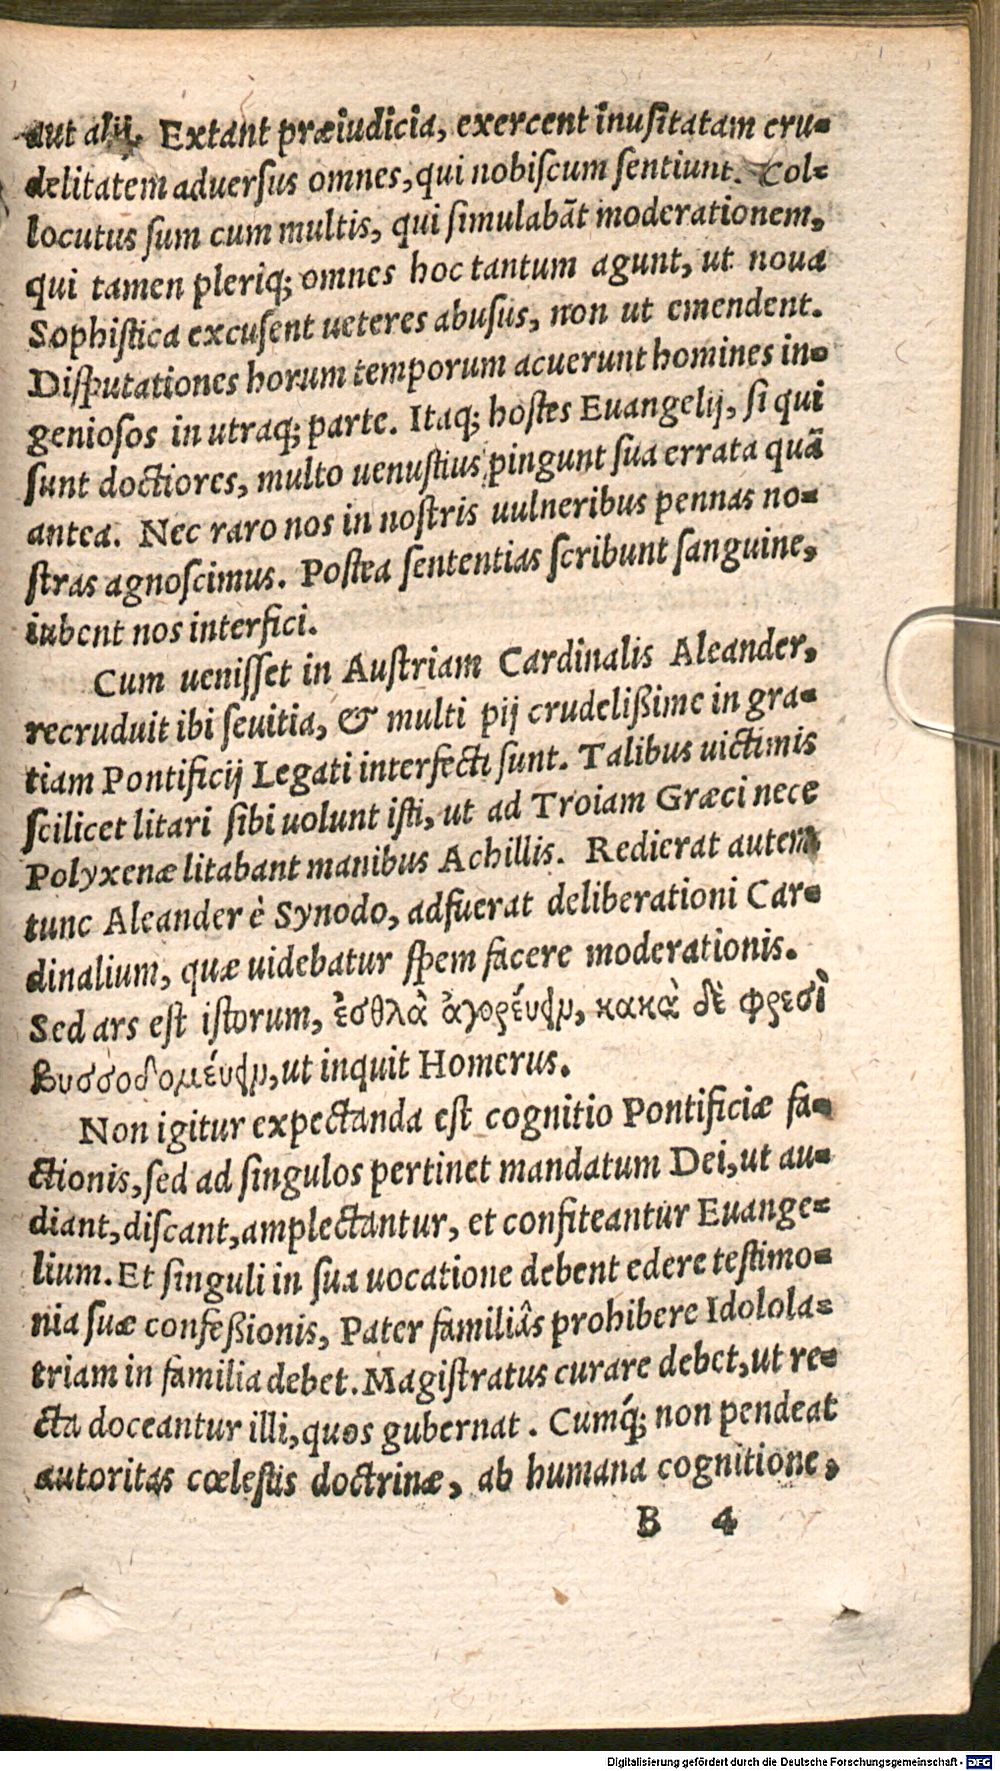 aut alij. Extant præiudicia, exercent inusitatam cru-
delitatem aduersus omnes, qui nobiscum sentiunt. Col-
locutus sum cum multis, qui simulabãt moderationem,
qui tamen pleriq; omnes hoc tantum agunt, ut noua
Sophistica excusent ueteres abusus, non ut emendent.
Disputationes horum temporum acuerunt homines in-
geniosos in utraq; parte. Itaq; hostes Euangelij, si qui
sunt doctiores, multo uenustius pingunt sua errata quã
antea. Nec raro nos in nostris uulneribus pennas no-
stras agnoscimus. Postea sententias scribunt sanguine,
iubent nos interfici.
Cum uenisset in Austriam Cardinalis Aleander,
recruduit ibi seuitia, & multi pij crudelißime in gra-
tiam Pontificij Legati interfecti sunt. Talibus uictimis
scilicet litari sibi uolunt isti, ut ad Troiam Græci nece
Polyxenæ litabant manibus Achillis. Redierat autem
tunc Aleander è Synodo, adfuerat deliberationi Car-
dinalium, quæ uidebatur spem facere moderationis.
Sed ars est istorum, ἐσθλὰ ἀγορεύειν, κακὰ δὲ φρεσὶ
βυσσοδομεύειν, ut inquit Homerus.
Non igitur expectanda est cognitio Pontificiæ fa-
ctionis, sed ad singulos pertinet mandatum Dei, ut au-
diant, discant, amplectantur, et confiteantur Euange-
lium. Et singuli in sua uocatione debent edere testimo-
nia suæ confeßionis, Pater familiâs prohibere Idolola-
triam in familia debet. Magistratus curare debet, ut re-
cta doceantur illi, quos gubernat. Cumq́; non pendeat
autoritas cœlestis doctrinæ, ab humana cognitione,
B 4
Digitalisierung gefördert durch die Deutsche Forschungsgemeinschaft - DFG